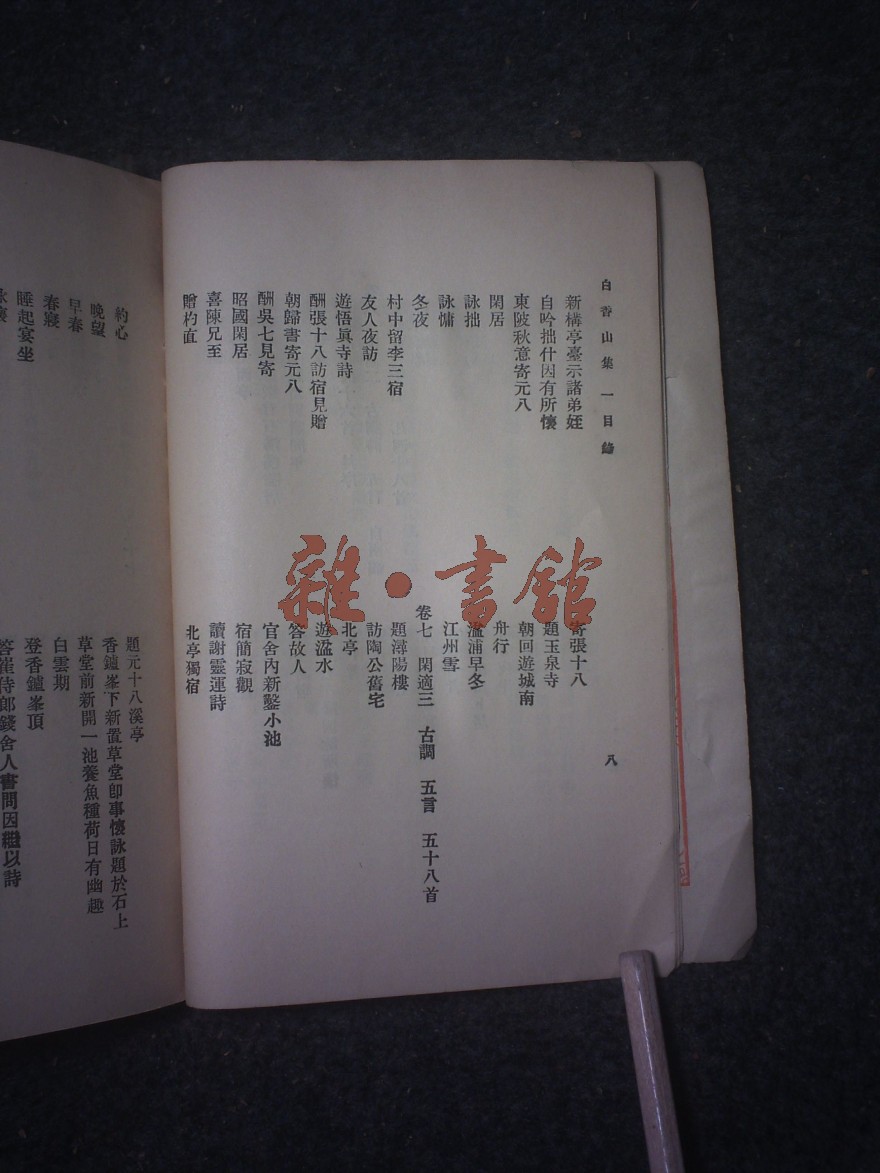 白香山集 一 目錄
八
新構亭臺示諸弟姪
自吟拙什因有所懷
東陂秋意寄元八
閑居
詠拙
詠慵
冬夜
村中留李三宿
友人夜訪
遊悟眞寺詩
酬張十八訪宿見贈
朝歸書寄元八
酬吳七見寄
昭國閑居
喜陳兄至
贈杓直
寄張十八
題玉泉寺
朝回遊城南
舟行
湓浦早冬
江州雪
卷七 閑適三 古調 五言 五十八首
題潯陽樓
訪陶公舊宅
北亭
遊湓水
答故人
官舍內新鑿小池
宿簡寂觀
讀謝靈運詩
北亭獨宿
約心
晚望
早春
春寢
睡起宴坐
詠懷
題元十八溪亭
香鑪峯下新置草堂卽事懷詠題於石上
草堂前新開一池養魚種荷日有幽趣
白雲期
登香鑪峯頂
答崔侍郎錢舍人書問因繼以詩
雜·書館